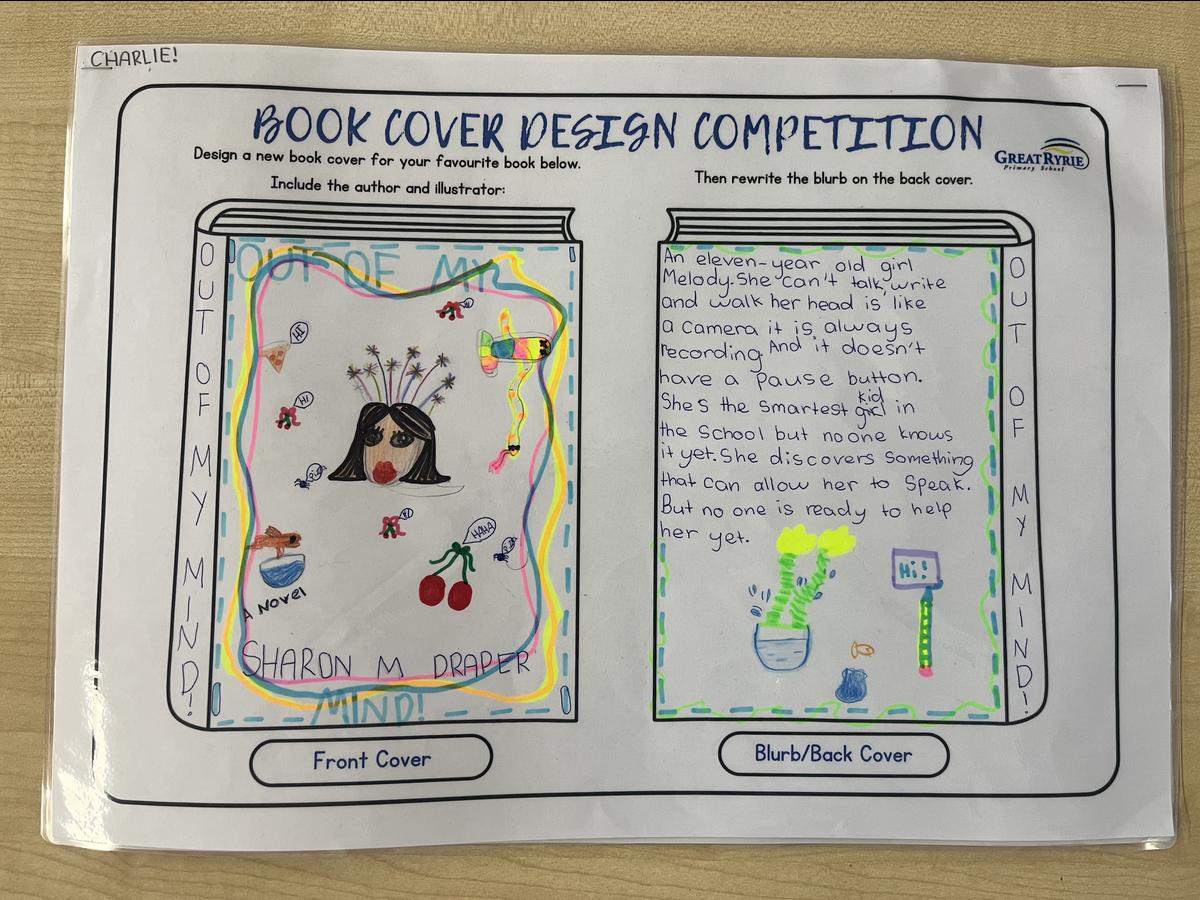 CHARLIE!
BOOK COVER DESIGN COMPETITION
Design a new book cover for your favourite book below.
Include the author and illustrator:
Then rewrite the blurb on the back cover.
GREAT RYRIE
Primary School
OUT OF MY MIND!
OUT OF MY
HI
HI
HAHA
A Novel
SHARON M DRAPER
MIND!
Front Cover
An eleven-year old girl
Melody. She can't talk, write
and walk her head is like
a camera it is always
recording. And it doesn't
have a pause button.
She's the smartest girl kid in
the school but no one knows
it yet. She discovers something
that can allow her to speak.
But no one is ready to help
her yet.
Hi!
OUT OF MY MIND!
Blurb/Back Cover